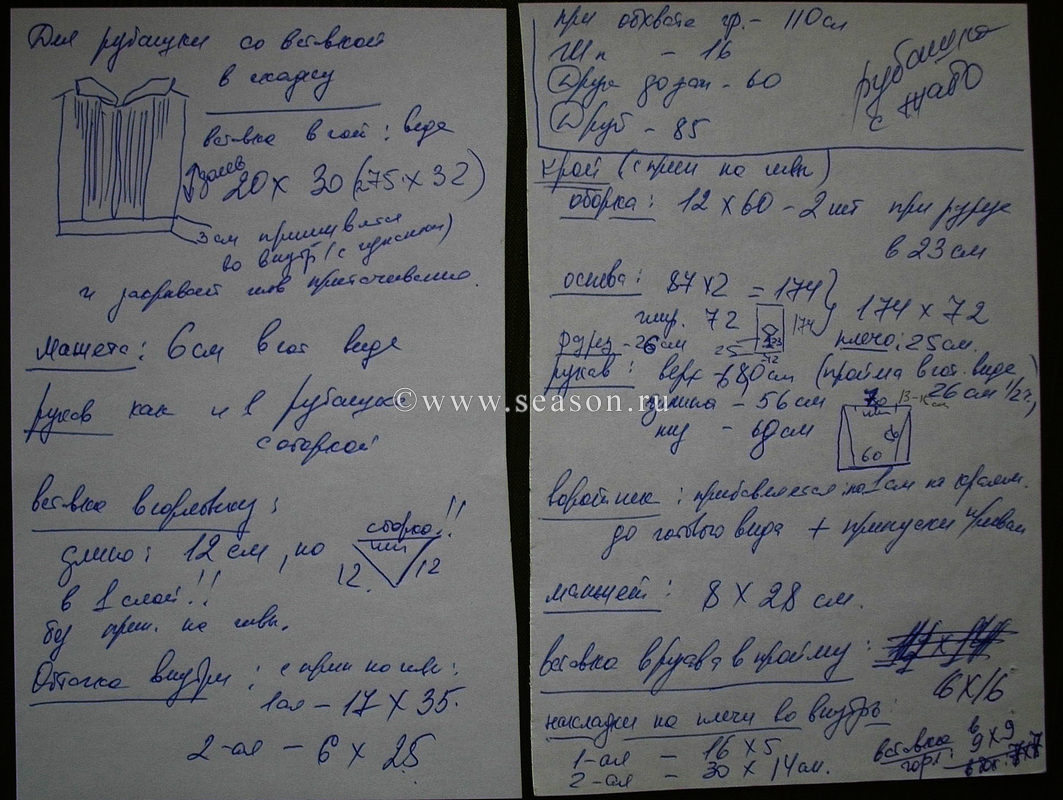 Для рубашки со вставкой
в складку
вставка в гот. виде
20 х 30 (27,5 х 32)
3 см пришивается
во внутрь (с изнанки)
и закрывает шов притачивания.
Манжета: 6 см в гот виде
рукав как и в рубашке
с оборкой
вставка в горловину:
длина: 12 см, по
сторона!!
12 12
в 1 слой!!
без прип. на швы.
Обтачка внутри: с прип на шв:
1ая – 17 х 35.
2-ая – 6 х 25
при обхвате гр. – 110 см
Шп – 16
Д рук до зап – 60
Д руб – 85
рубашка
с жабо
крой (с прип на швы)
оборка: 12 х 60 – 2 шт при разрезе
в 23 см
основа: 87 х 2 = 174
шир. 72
174 х 72
174
25
72
разрез – 26 см
плечо: 25 см.
рукав: верх – 80 см (пройма в гот. виде
26 см 1/2ч.)
длина – 56 см
низ – 60 см
60
воротник: прибавляется по 1 см по краям.
до готового вида + припуски
манжет: 8 х 28 см.
вставка в рукава в пройму:
16 х 16
накладки на плечи во внутрь
1-ая – 16 х 5
2-ая – 30 х 14 см.
вставка в
горл: 9 х 9
©www.season.ru